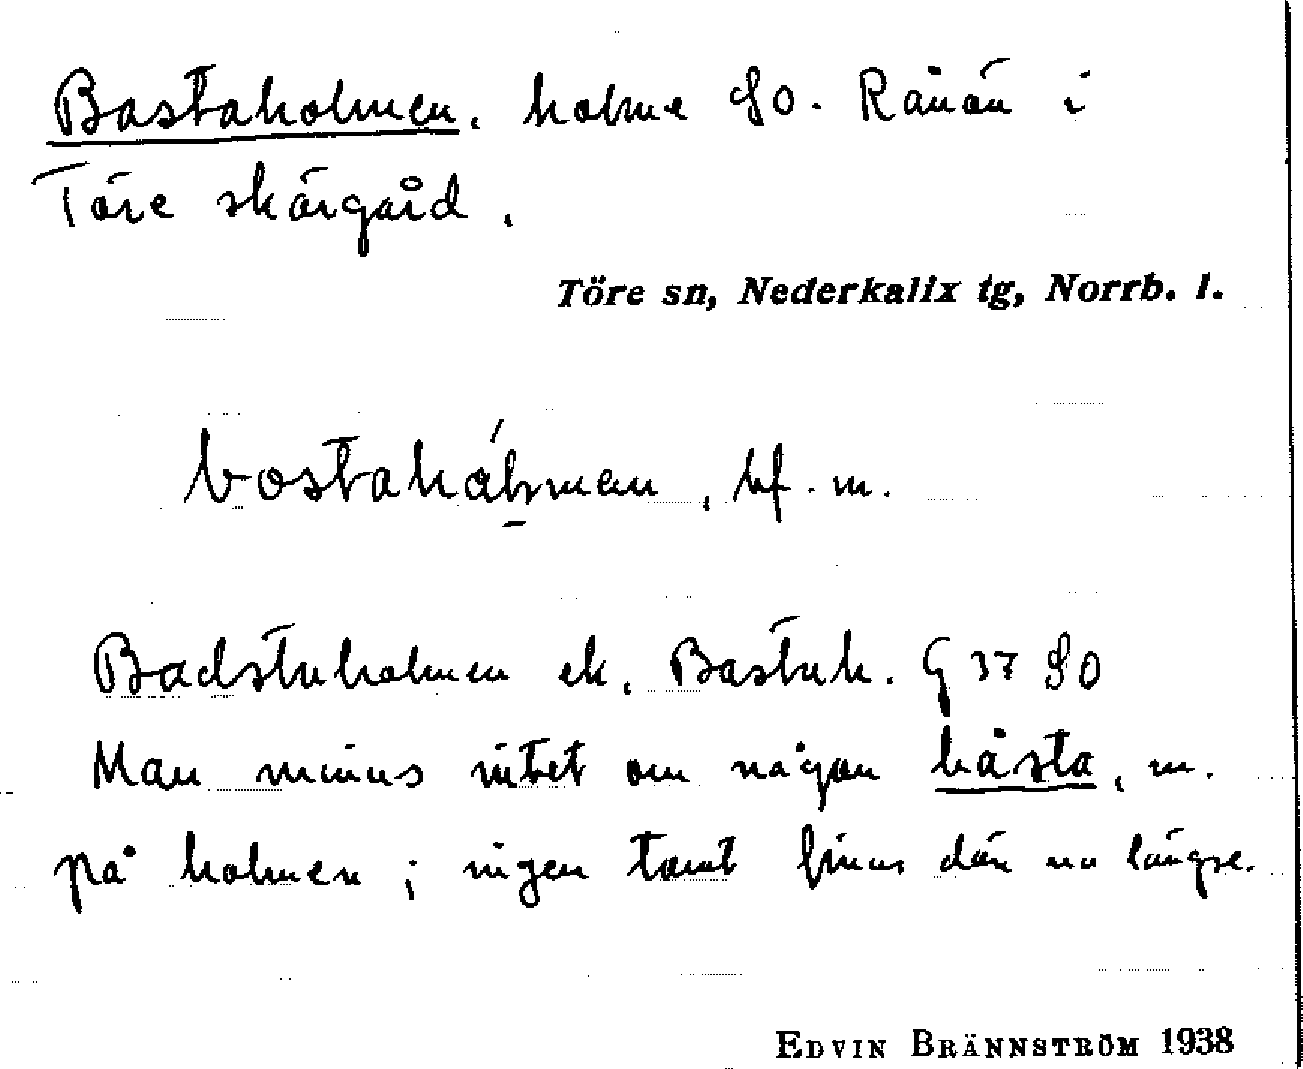 Bastaholmen. holme SO. Rånön i
Töre skärgård.
Töre sn, Nederkalix tg, Norrb. l.
bostahálmen, bf. m.
Badstuholmen ek. Bastuh. G 37 SO
Man minns intet om någon båsta, m.
på holmen; ingen tomt finns där nu längre.
EDVIN BRÄNNSTRÖM 1938